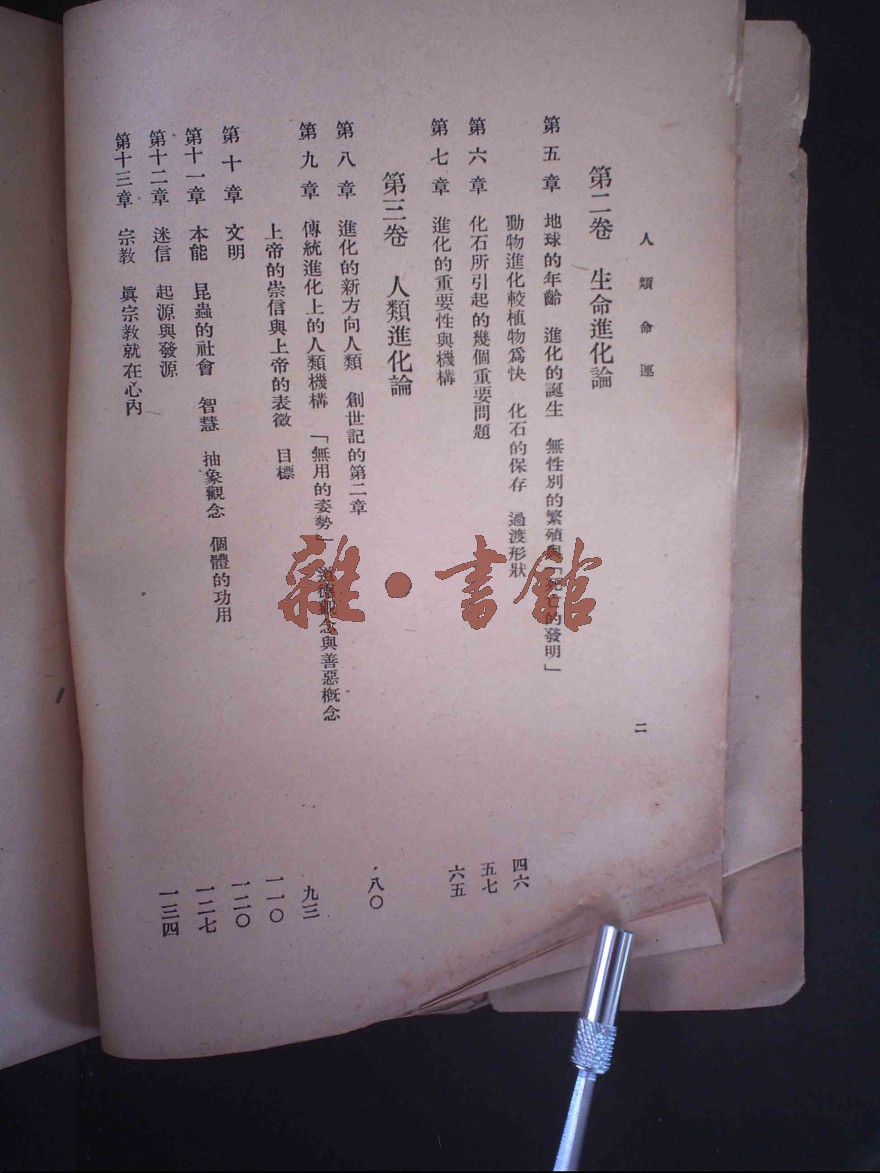 人類命運
二
第二卷　生命進化論
第五章　地球的年齡　進化的誕生　無性別的繁殖與「死亡的發明」
動物進化較植物爲快　化石的保存　過渡形狀
四六
第六章　化石所引起的幾個重要問題
五七
第七章　進化的重要性與機構
六五
第三卷　人類進化論
第八章　進化的新方向人類　創世記的第二章
八〇
第九章　傳統進化上的人類機構　「無用的姿勢」　道德觀念與善惡概念
上帝的崇信與上帝的表徵　目標
九三
第十章　文明
一一〇
第十一章　本能　昆蟲的社會　智慧　抽象觀念　個體的功用
一二〇
第十二章　迷信　起源與發源
一二七
第十三章　宗教　眞宗教就在心內
一三四
雜·書館